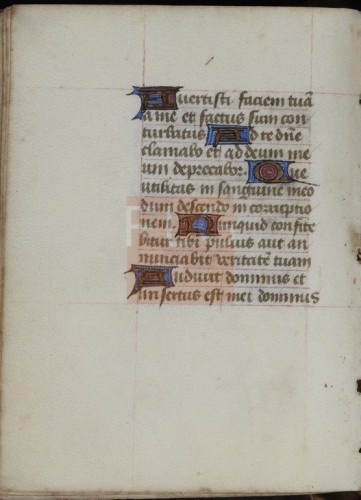 Avertisti faciem tuā
a me et factus sum con
turbatus Ad te dñe
clamabo et ad deum me
um deprecabor. Que
utilitas in sanguine meo
dum descendo in corruptio
nem. Nunquid confite
bitur tibi pulvis aut an
nunciabit veritatē tuam
Audivit dominus et
misertus est mei dominus